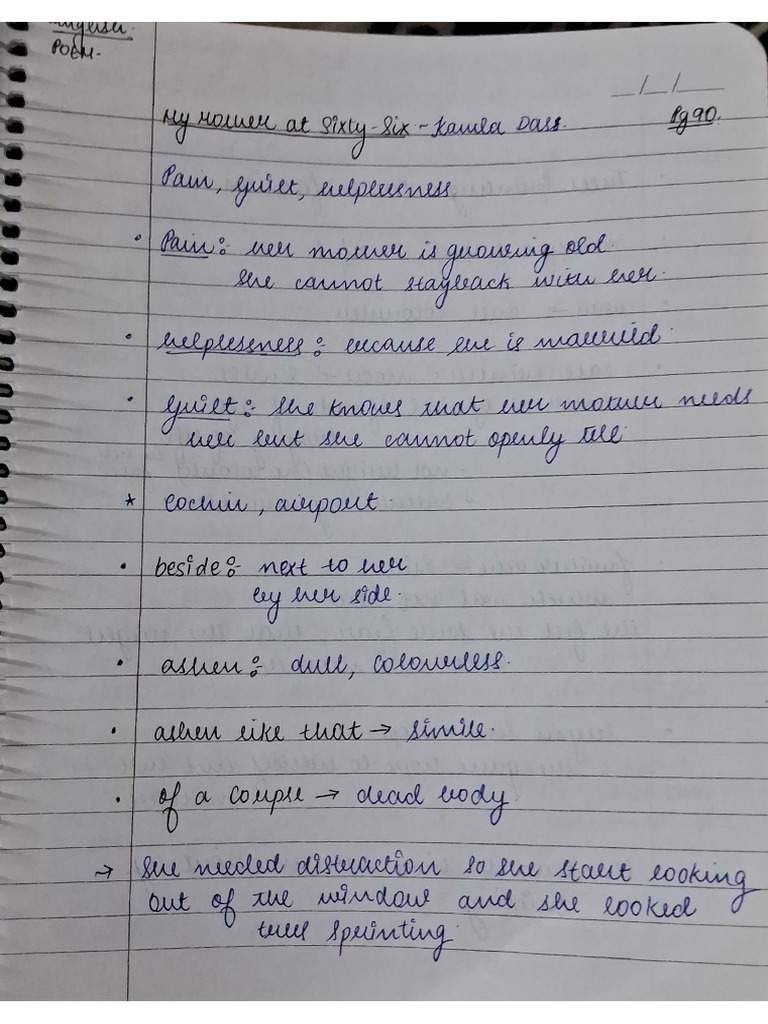 English.
POEM-
_/_/_
My Mother at Sixty-Six - Kamla Dass. Pg 90.
Pain, guilt, helplessness
• Pain:- her mother is growing old.
she cannot stayback with her.
• helplessness:- because she is married.
• guilt:- she knows that her mother needs
her but she cannot openly tell.
* cochin, airport.
• beside:- next to her
by her side.
• ashen:- dull, colourless.
• ashen like that → simile.
• of a corpse → dead body.
→ she needed distraction so she start looking
out of the window and she looked
trees sprinting.